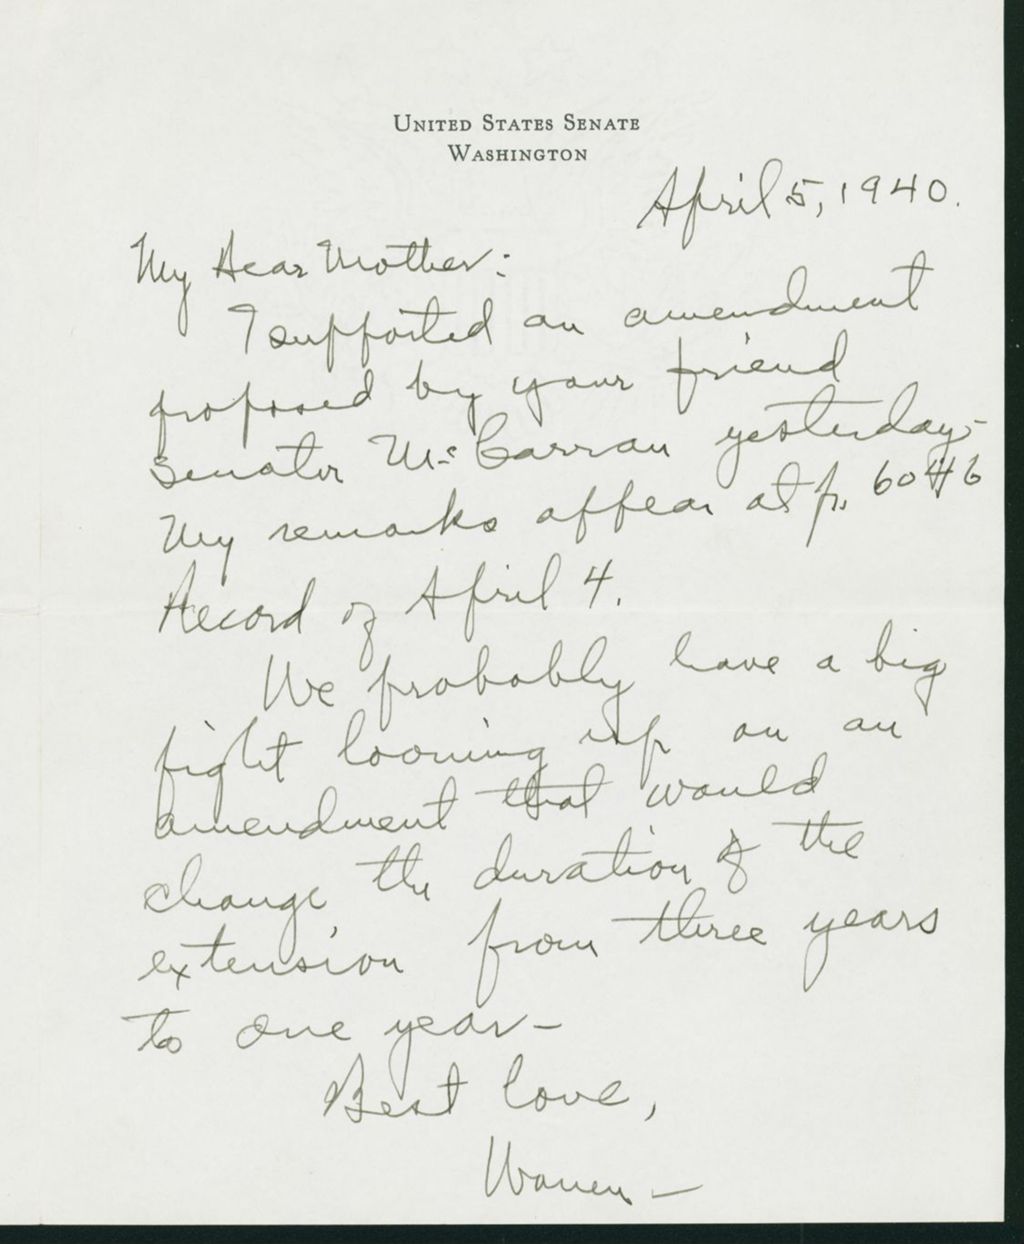 UNITED STATES SENATE
WASHINGTON
April 5, 1940.
My Dear Mother:
I supported an amendment
proposed by your friend
Senator McCarran yesterday-
My remarks appear at p. 6046
Record of April 4.
We probably have a big
fight looming up on an
amendment that would
change the duration of the
extension from three years
to one year-
Best love,
Warren-